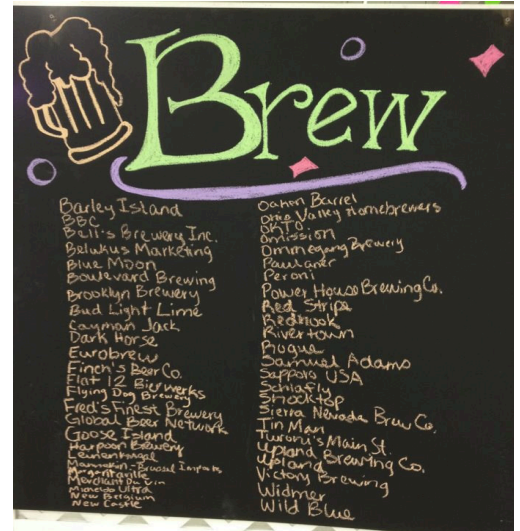 Brew
Barley Island
BBC
Bell's Brewery Inc.
Belukus Marketing
Blue Moon
Boulevard Brewing
Brooklyn Brewery
Bud Light Lime
Cayman Jack
Dark Horse
Eurobrew
Finch's Beer Co.
Flat 12 Bierwerks
Flying Dog Brewery
Fred's Finest Brewery
Global Beer Network
Goose Island
Harpoon Brewery
Leinenkugel
Manneken-Brussel Imports
Margaritaville
Merchant Du Vin
Michelob Ultra
New Belgium
New Castle
Oaken Barrel
Ohio Valley Homebrewers
OKTO
Omission
Ommegang Brewery
Paulaner
Peroni
Power House Brewing Co.
Red Stripe
Redhook
Rivertown
Rogue
Samuel Adams
Sapporo USA
Schlafly
Shocktop
Sierra Nevada Brew Co.
Tin Man
Turoni's Main St.
Upland Brewing Co.
Upland
Victory Brewing
Widmer
Wild Blue